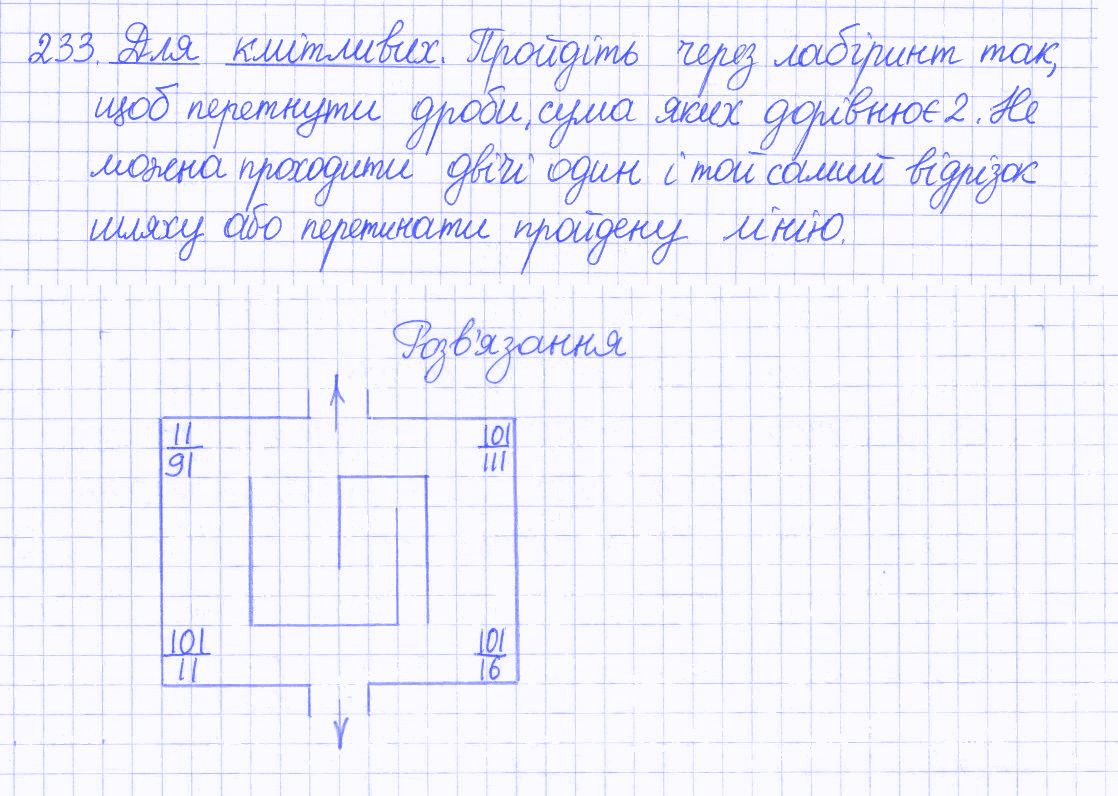 233. Для кмітливих. Пройдіть через лабіринт так,
щоб перетнути дроби, сума яких дорівнює 2. Не
можна проходити двічі один і той самий відрізок
шляху або перетинати пройдену лінію.
Розв'язання
11/91 101/111
101/11 101/16